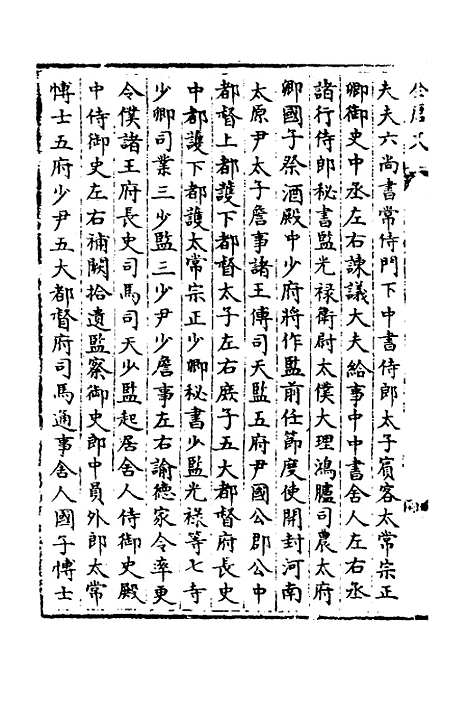 夫夫六尚書常侍門下中書侍郎太子賓客太常宗正
卿御史中丞左右諫議大夫給事中中書舍人左右丞
諸行侍郎秘書監光禄衛尉太僕大理鴻臚司農太府
卿國子祭酒殿中少府將作監前任節度使開封河南
太原尹太子詹事諸王傅司天監五府尹國公郡公中
都督上都護下都督太子左右庶子五大都督府長史
中都護下都護太常宗正少卿秘書少監光祿等七寺
少卿司業三少監三少尹少詹事左右諭德家令率更
令僕諸王府長史司馬司天少監起居舍人侍御史殿
中侍御史左右補闕拾遺監察御史郎中員外郎太常
博士五府少尹五大都督府司馬通事舍人國子博士